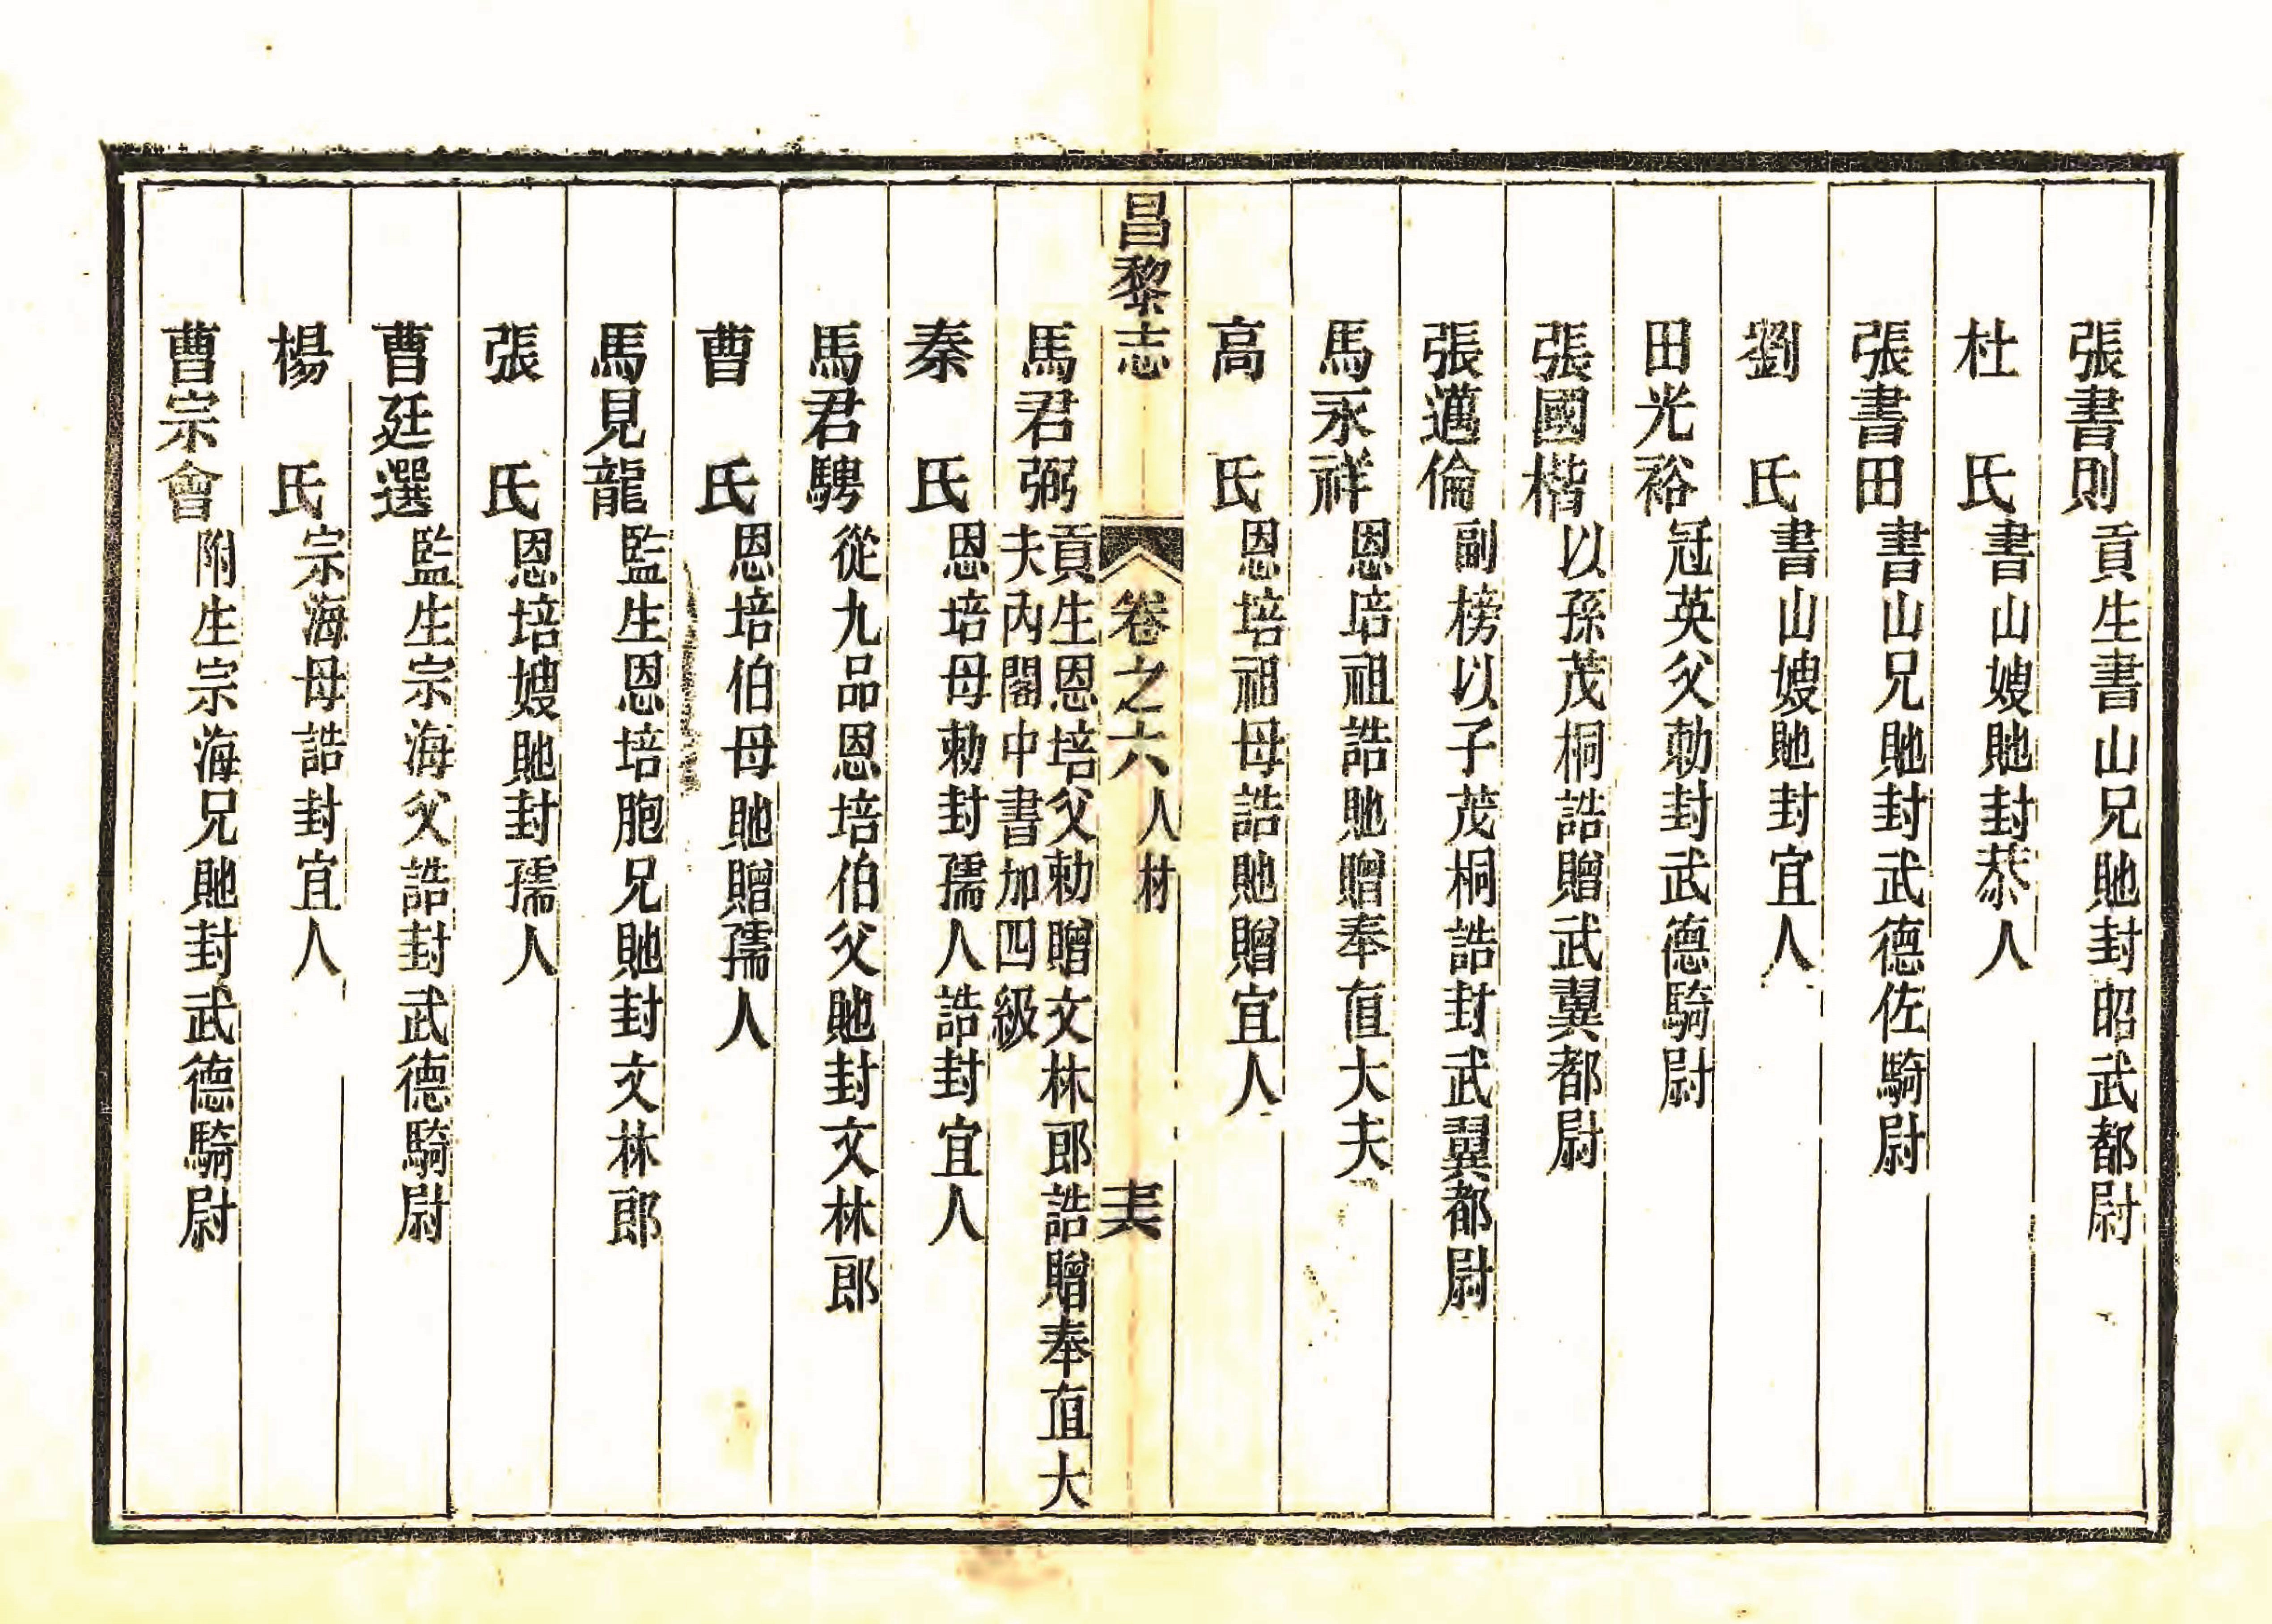 張書則貢生書山兄貤封昭武都尉
杜氏書山嫂貤封恭人
張書田書山兄貤封武德佐騎尉
劉氏書山嫂貤封宜人
田光裕冠英父勅封武德騎尉
張國楷以孫茂桐誥贈武翼都尉
張邁倫副榜以子茂桐誥封武翼都尉
馬永祥恩培祖誥貤贈奉直大夫
高氏恩培祖母誥貤贈宜人
昌黎志 卷之六人材
馬君弼貢生恩培父勅贈文林郎誥贈奉直大
夫內閣中書加四級
秦氏恩培母勅封孺人誥封宜人
馬君騁從九品恩培伯父貤封文林郎
曹氏恩培伯母貤贈孺人
馬見龍監生恩培胞兄貤封文林郎
張氏恩培嫂貤封孺人
曹廷選監生宗海父誥封武德騎尉
楊氏宗海母誥封宜人
曹宗會附生宗海兄貤封武德騎尉